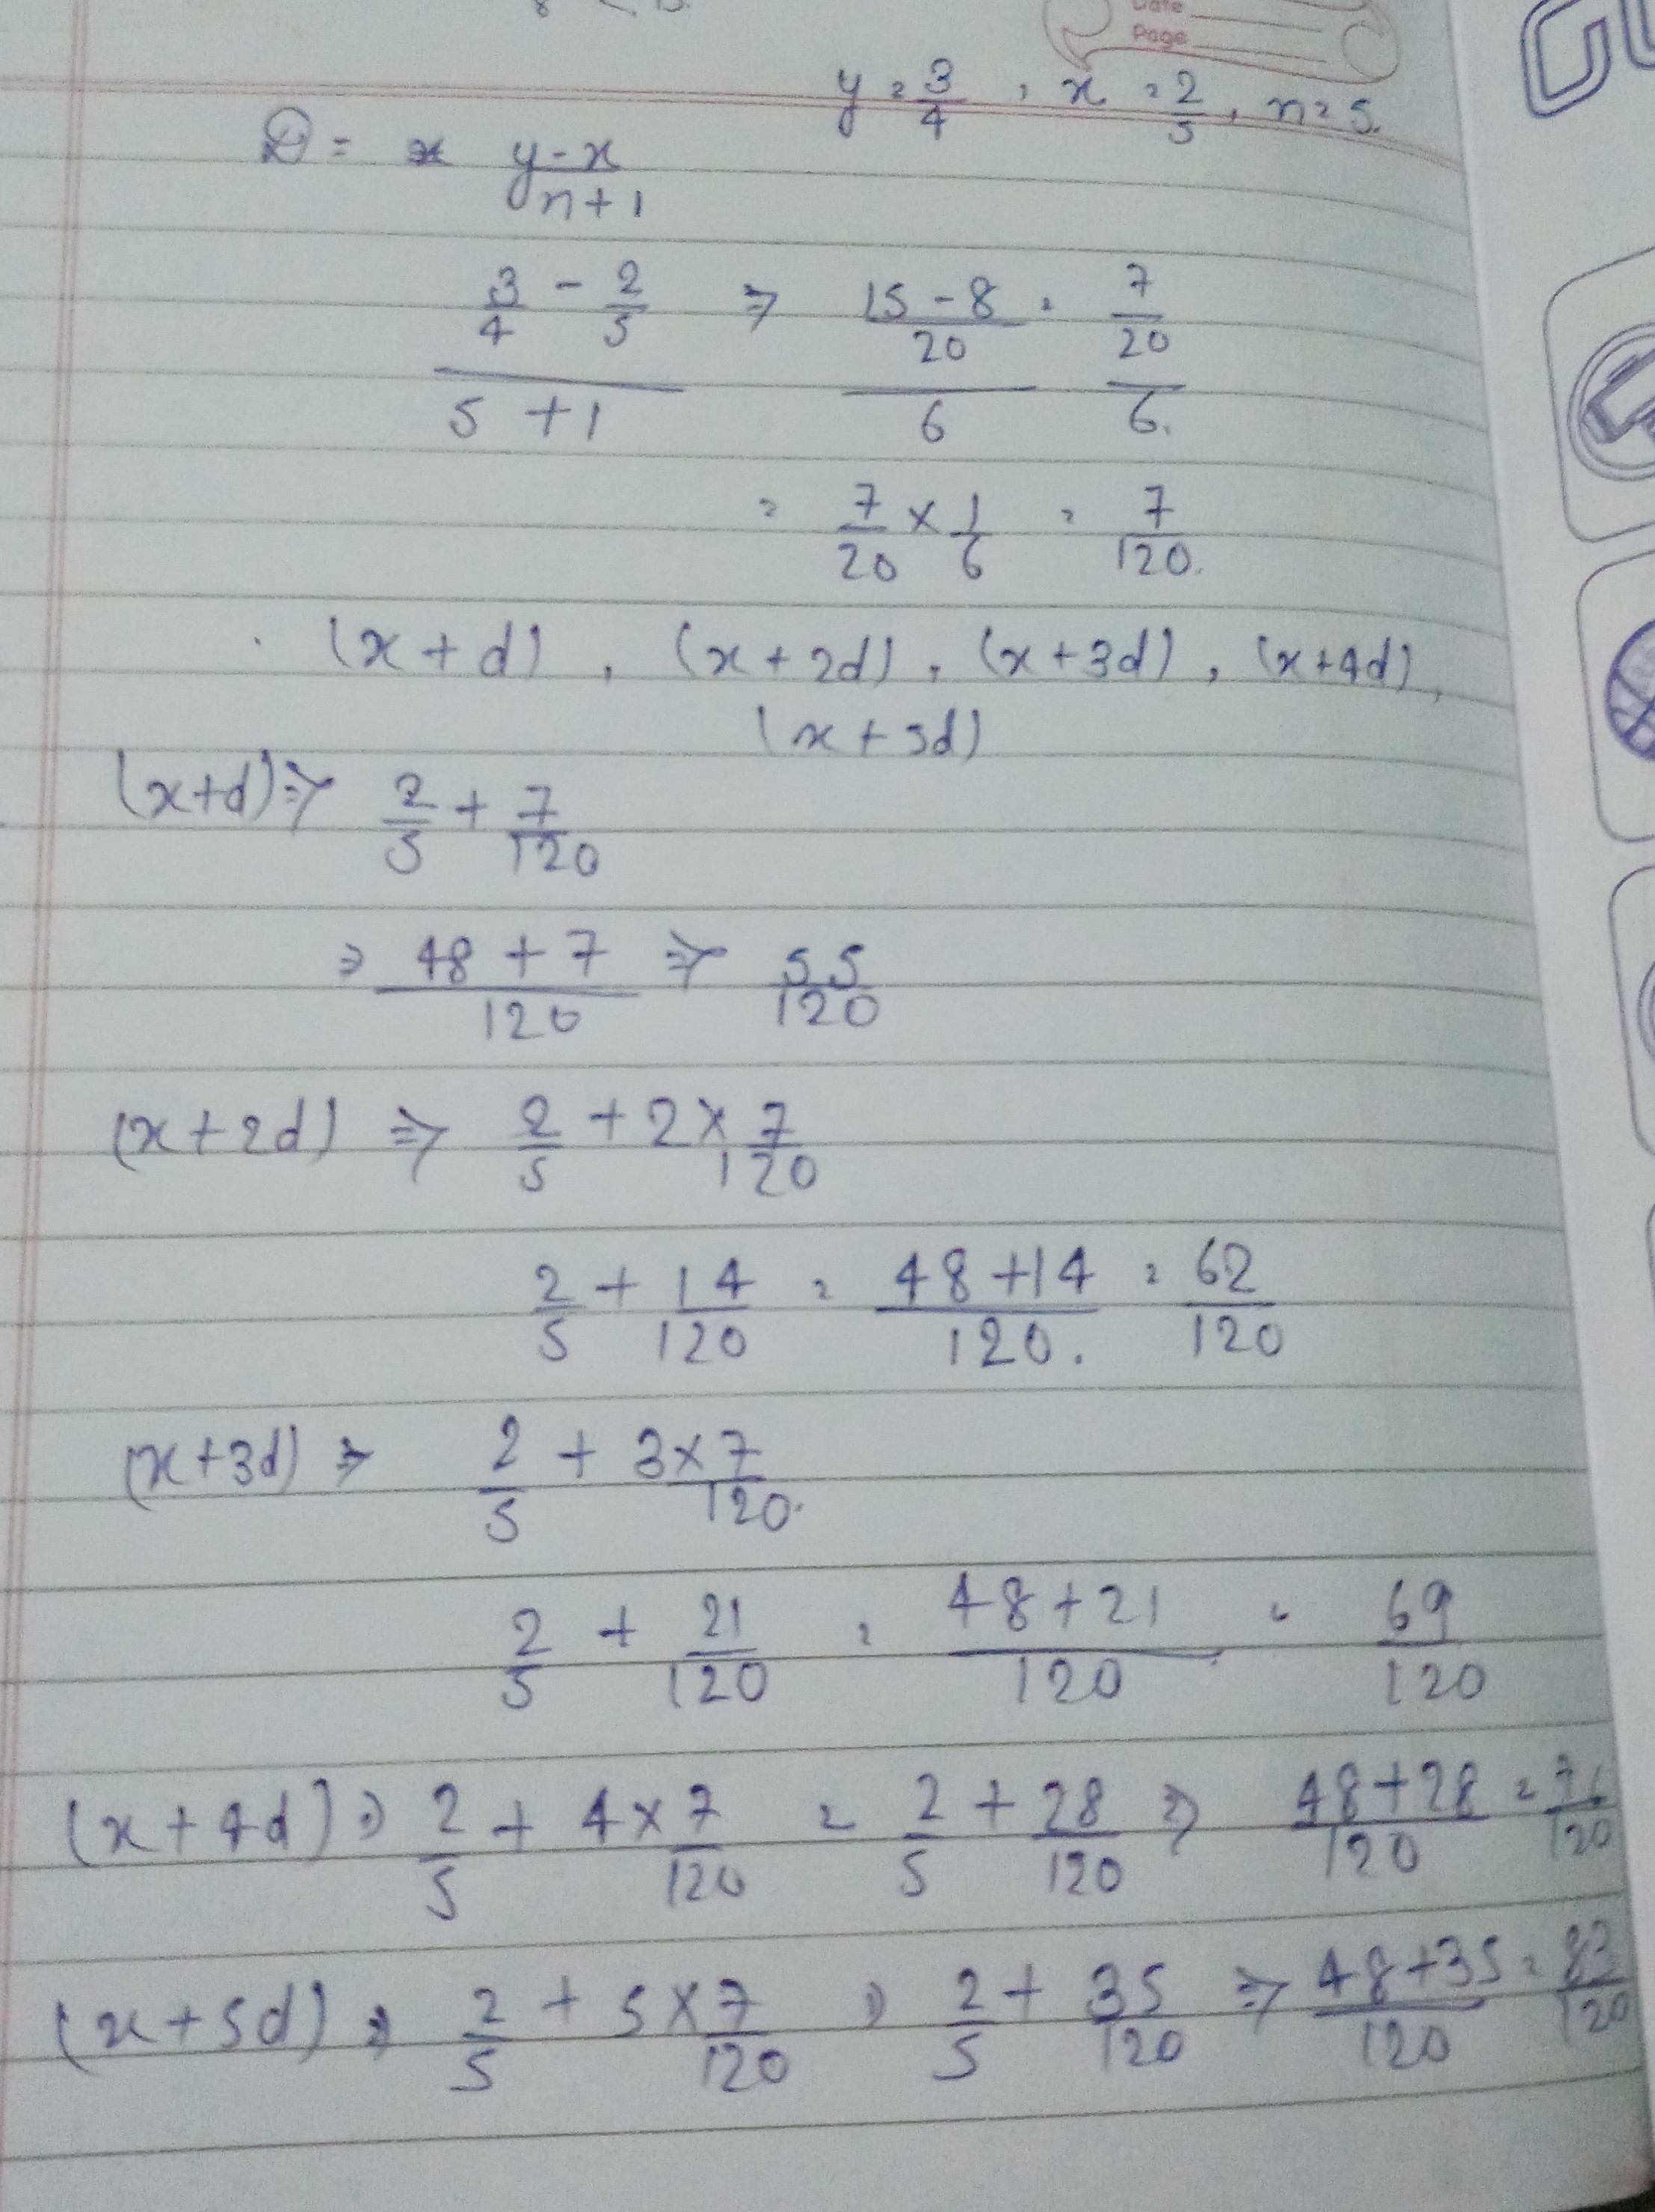 Date
Page
y = 3/4 , x = 2/5 , n = 5.
D = y-x / n+1
3/4 - 2/5 / 5+1 ⇒ 15-8/20 / 6 = 7/20 / 6.
= 7/20 × 1/6 = 7/120.
(x+d) , (x+2d) , (x+3d) , (x+4d) ,
(x+5d)
(x+d) ⇒ 2/5 + 7/120
⇒ 48+7/120 ⇒ 55/120
(x+2d) ⇒ 2/5 + 2×7/120
2/5 + 14/120 = 48+14/120. = 62/120
(x+3d) ⇒ 2/5 + 3×7/120.
2/5 + 21/120 = 48+21/120 = 69/120
(x+4d) ⇒ 2/5 + 4×7/120 = 2/5 + 28/120 ⇒ 48+28/120 = 76/120
(x+5d) ⇒ 2/5 + 5×7/120 ⇒ 2/5 + 35/120 ⇒ 48+35/120 = 83/120